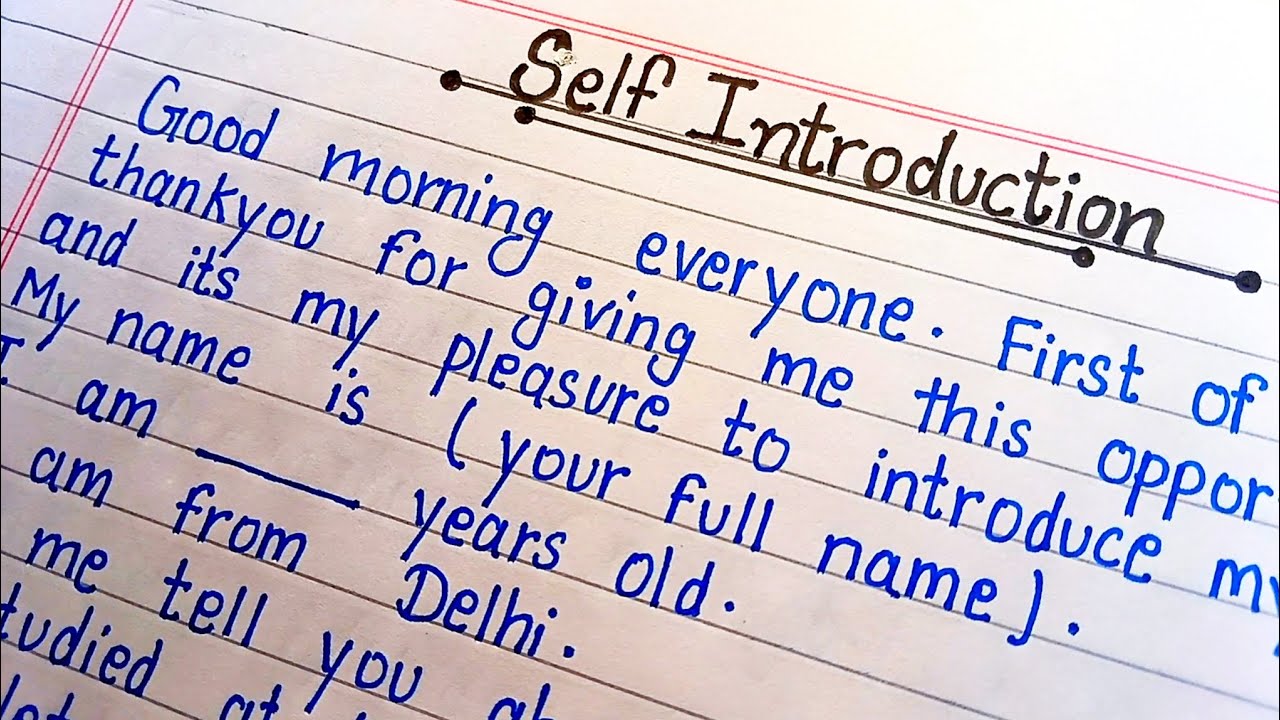 Self Introduction
Good morning everyone. First of
thankyou for giving me this oppor
and its my pleasure to introduce my
My name is (your full name).
I am ____ years old.
am from Delhi.
me tell you ab
tudied at
let